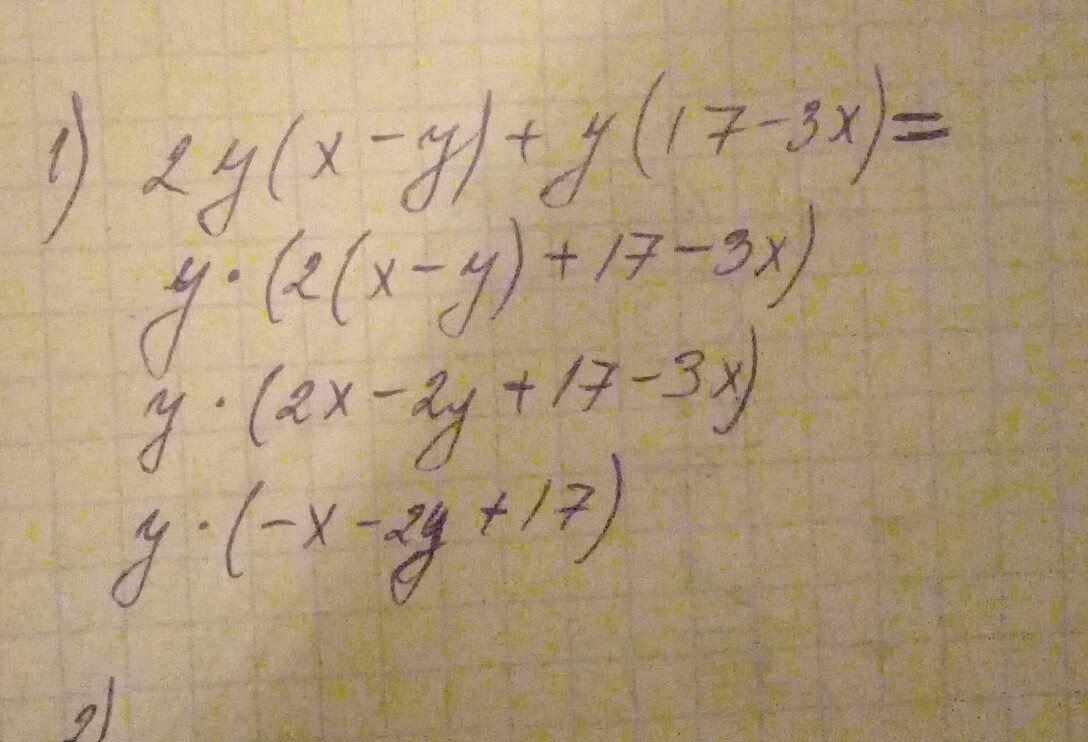 1) 2y(x-y)+y(17-3x)=
y·(2(x-y)+17-3x)
y·(2x-2y+17-3x)
y·(-x-2y+17)
2)